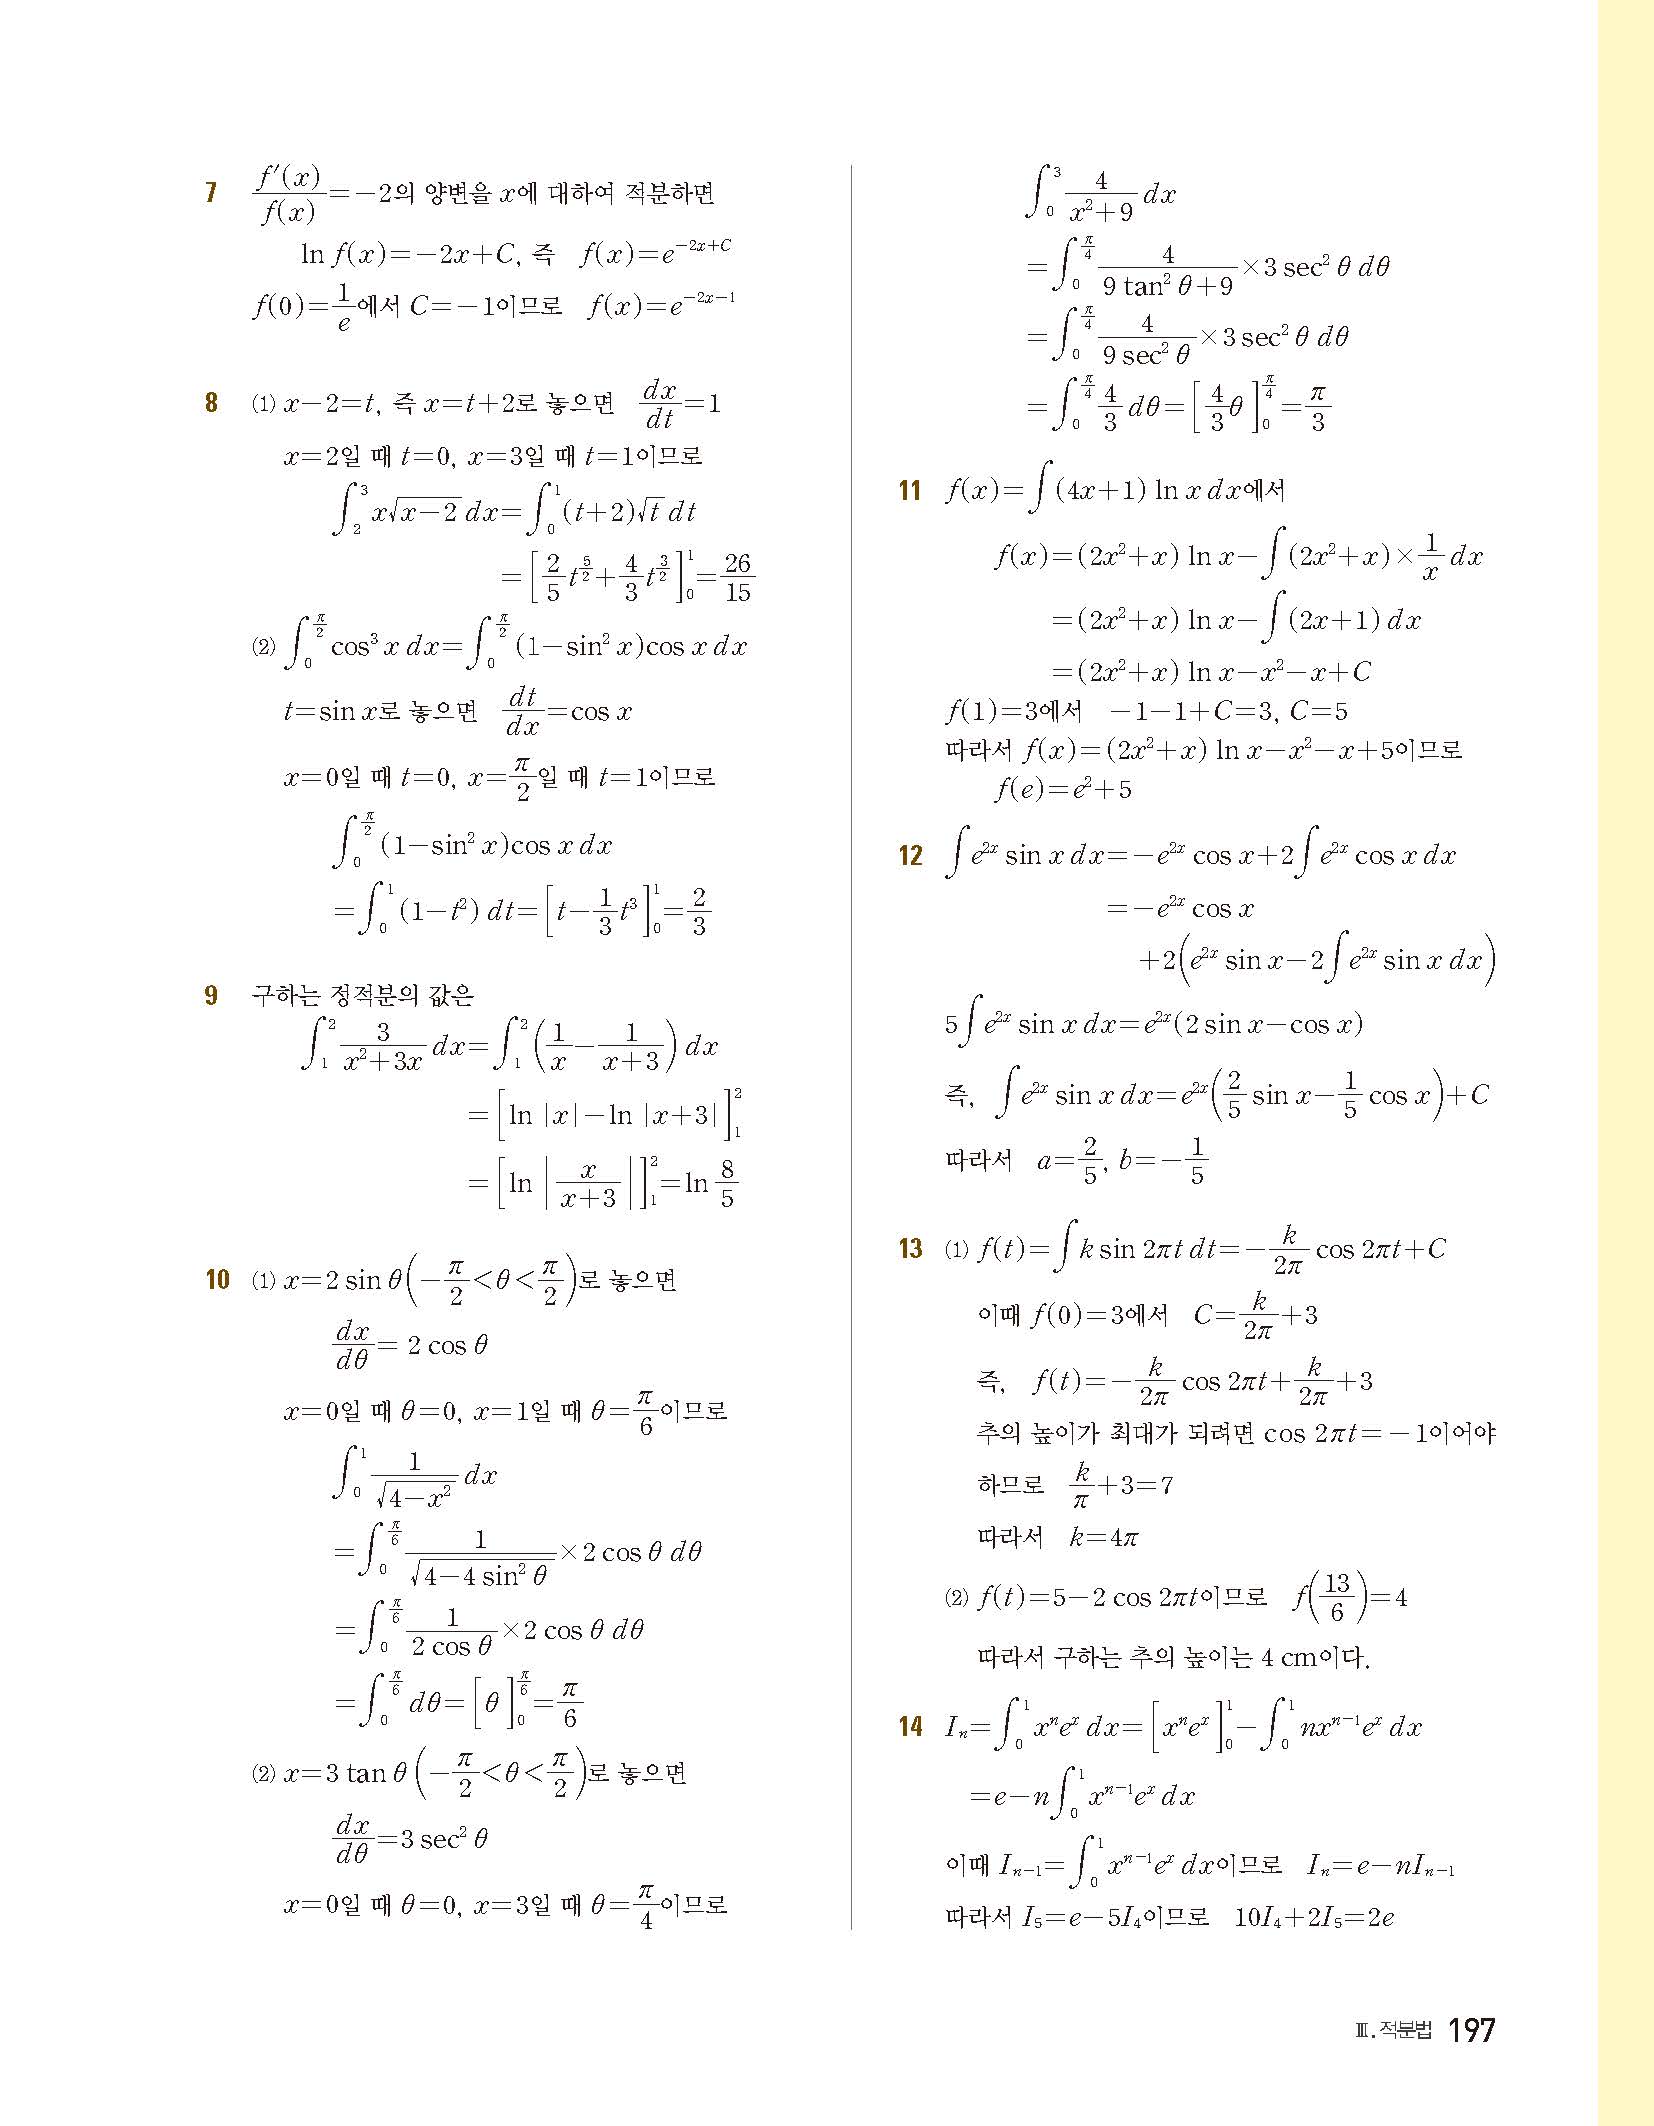 7 f′(x)/f(x)=-2의 양변을 x에 대하여 적분하면
ln f(x)=-2x+C, 즉 f(x)=e^{-2x+C}
f(0)=1/e에서 C=-1이므로 f(x)=e^{-2x-1}
8 ⑴ x-2=t, 즉 x=t+2로 놓으면 dx/dt=1
x=2일 때 t=0, x=3일 때 t=1이므로
∫_2^3 x√(x-2) dx=∫_0^1 (t+2)√t dt
=[2/5 t^{5/2}+4/3 t^{3/2}]_0^1=26/15
⑵ ∫_0^{π/2} cos³ x dx=∫_0^{π/2} (1-sin² x)cos x dx
t=sin x로 놓으면 dt/dx=cos x
x=0일 때 t=0, x=π/2일 때 t=1이므로
∫_0^{π/2} (1-sin² x)cos x dx
=∫_0^1 (1-t²) dt=[t-1/3 t³]_0^1=2/3
9 구하는 정적분의 값은
∫_1^2 3/(x²+3x) dx=∫_1^2 (1/x-1/(x+3)) dx
=[ln |x|-ln |x+3|]_1^2
=[ln |x/(x+3)|]_1^2=ln 8/5
10 ⑴ x=2 sin θ(-π/2<θ<π/2)로 놓으면
dx/dθ= 2 cos θ
x=0일 때 θ=0, x=1일 때 θ=π/6이므로
∫_0^1 1/√(4-x²) dx
=∫_0^{π/6} 1/√(4-4 sin² θ)×2 cos θ dθ
=∫_0^{π/6} 1/(2 cos θ)×2 cos θ dθ
=∫_0^{π/6} dθ=[θ]_0^{π/6}=π/6
⑵ x=3 tan θ (-π/2<θ<π/2)로 놓으면
dx/dθ=3 sec² θ
x=0일 때 θ=0, x=3일 때 θ=π/4이므로
∫_0^3 4/(x²+9) dx
=∫_0^{π/4} 4/(9 tan² θ+9)×3 sec² θ dθ
=∫_0^{π/4} 4/(9 sec² θ)×3 sec² θ dθ
=∫_0^{π/4} 4/3 dθ=[4/3 θ]_0^{π/4}=π/3
11 f(x)=∫(4x+1) ln x dx에서
f(x)=(2x²+x) ln x-∫(2x²+x)×1/x dx
=(2x²+x) ln x-∫(2x+1) dx
=(2x²+x) ln x-x²-x+C
f(1)=3에서 -1-1+C=3, C=5
따라서 f(x)=(2x²+x) ln x-x²-x+5이므로
f(e)=e²+5
12 ∫e^{2x} sin x dx=-e^{2x} cos x+2∫e^{2x} cos x dx
=-e^{2x} cos x
+2(e^{2x} sin x-2∫e^{2x} sin x dx)
5∫e^{2x} sin x dx=e^{2x}(2 sin x-cos x)
즉, ∫e^{2x} sin x dx=e^{2x}(2/5 sin x-1/5 cos x)+C
따라서 a=2/5, b=-1/5
13 ⑴ f(t)=∫k sin 2πt dt=-k/2π cos 2πt+C
이때 f(0)=3에서 C=k/2π+3
즉, f(t)=-k/2π cos 2πt+k/2π+3
추의 높이가 최대가 되려면 cos 2πt=-1이어야
하므로 k/π+3=7
따라서 k=4π
⑵ f(t)=5-2 cos 2πt이므로 f(13/6)=4
따라서 구하는 추의 높이는 4 cm이다.
14 I_n=∫_0^1 x^n e^x dx=[x^n e^x]_0^1-∫_0^1 nx^{n-1}e^x dx
=e-n∫_0^1 x^{n-1}e^x dx
이때 I_{n-1}=∫_0^1 x^{n-1}e^x dx이므로 I_n=e-nI_{n-1}
따라서 I_5=e-5I_4이므로 10I_4+2I_5=2e
Ⅲ. 적분법 197